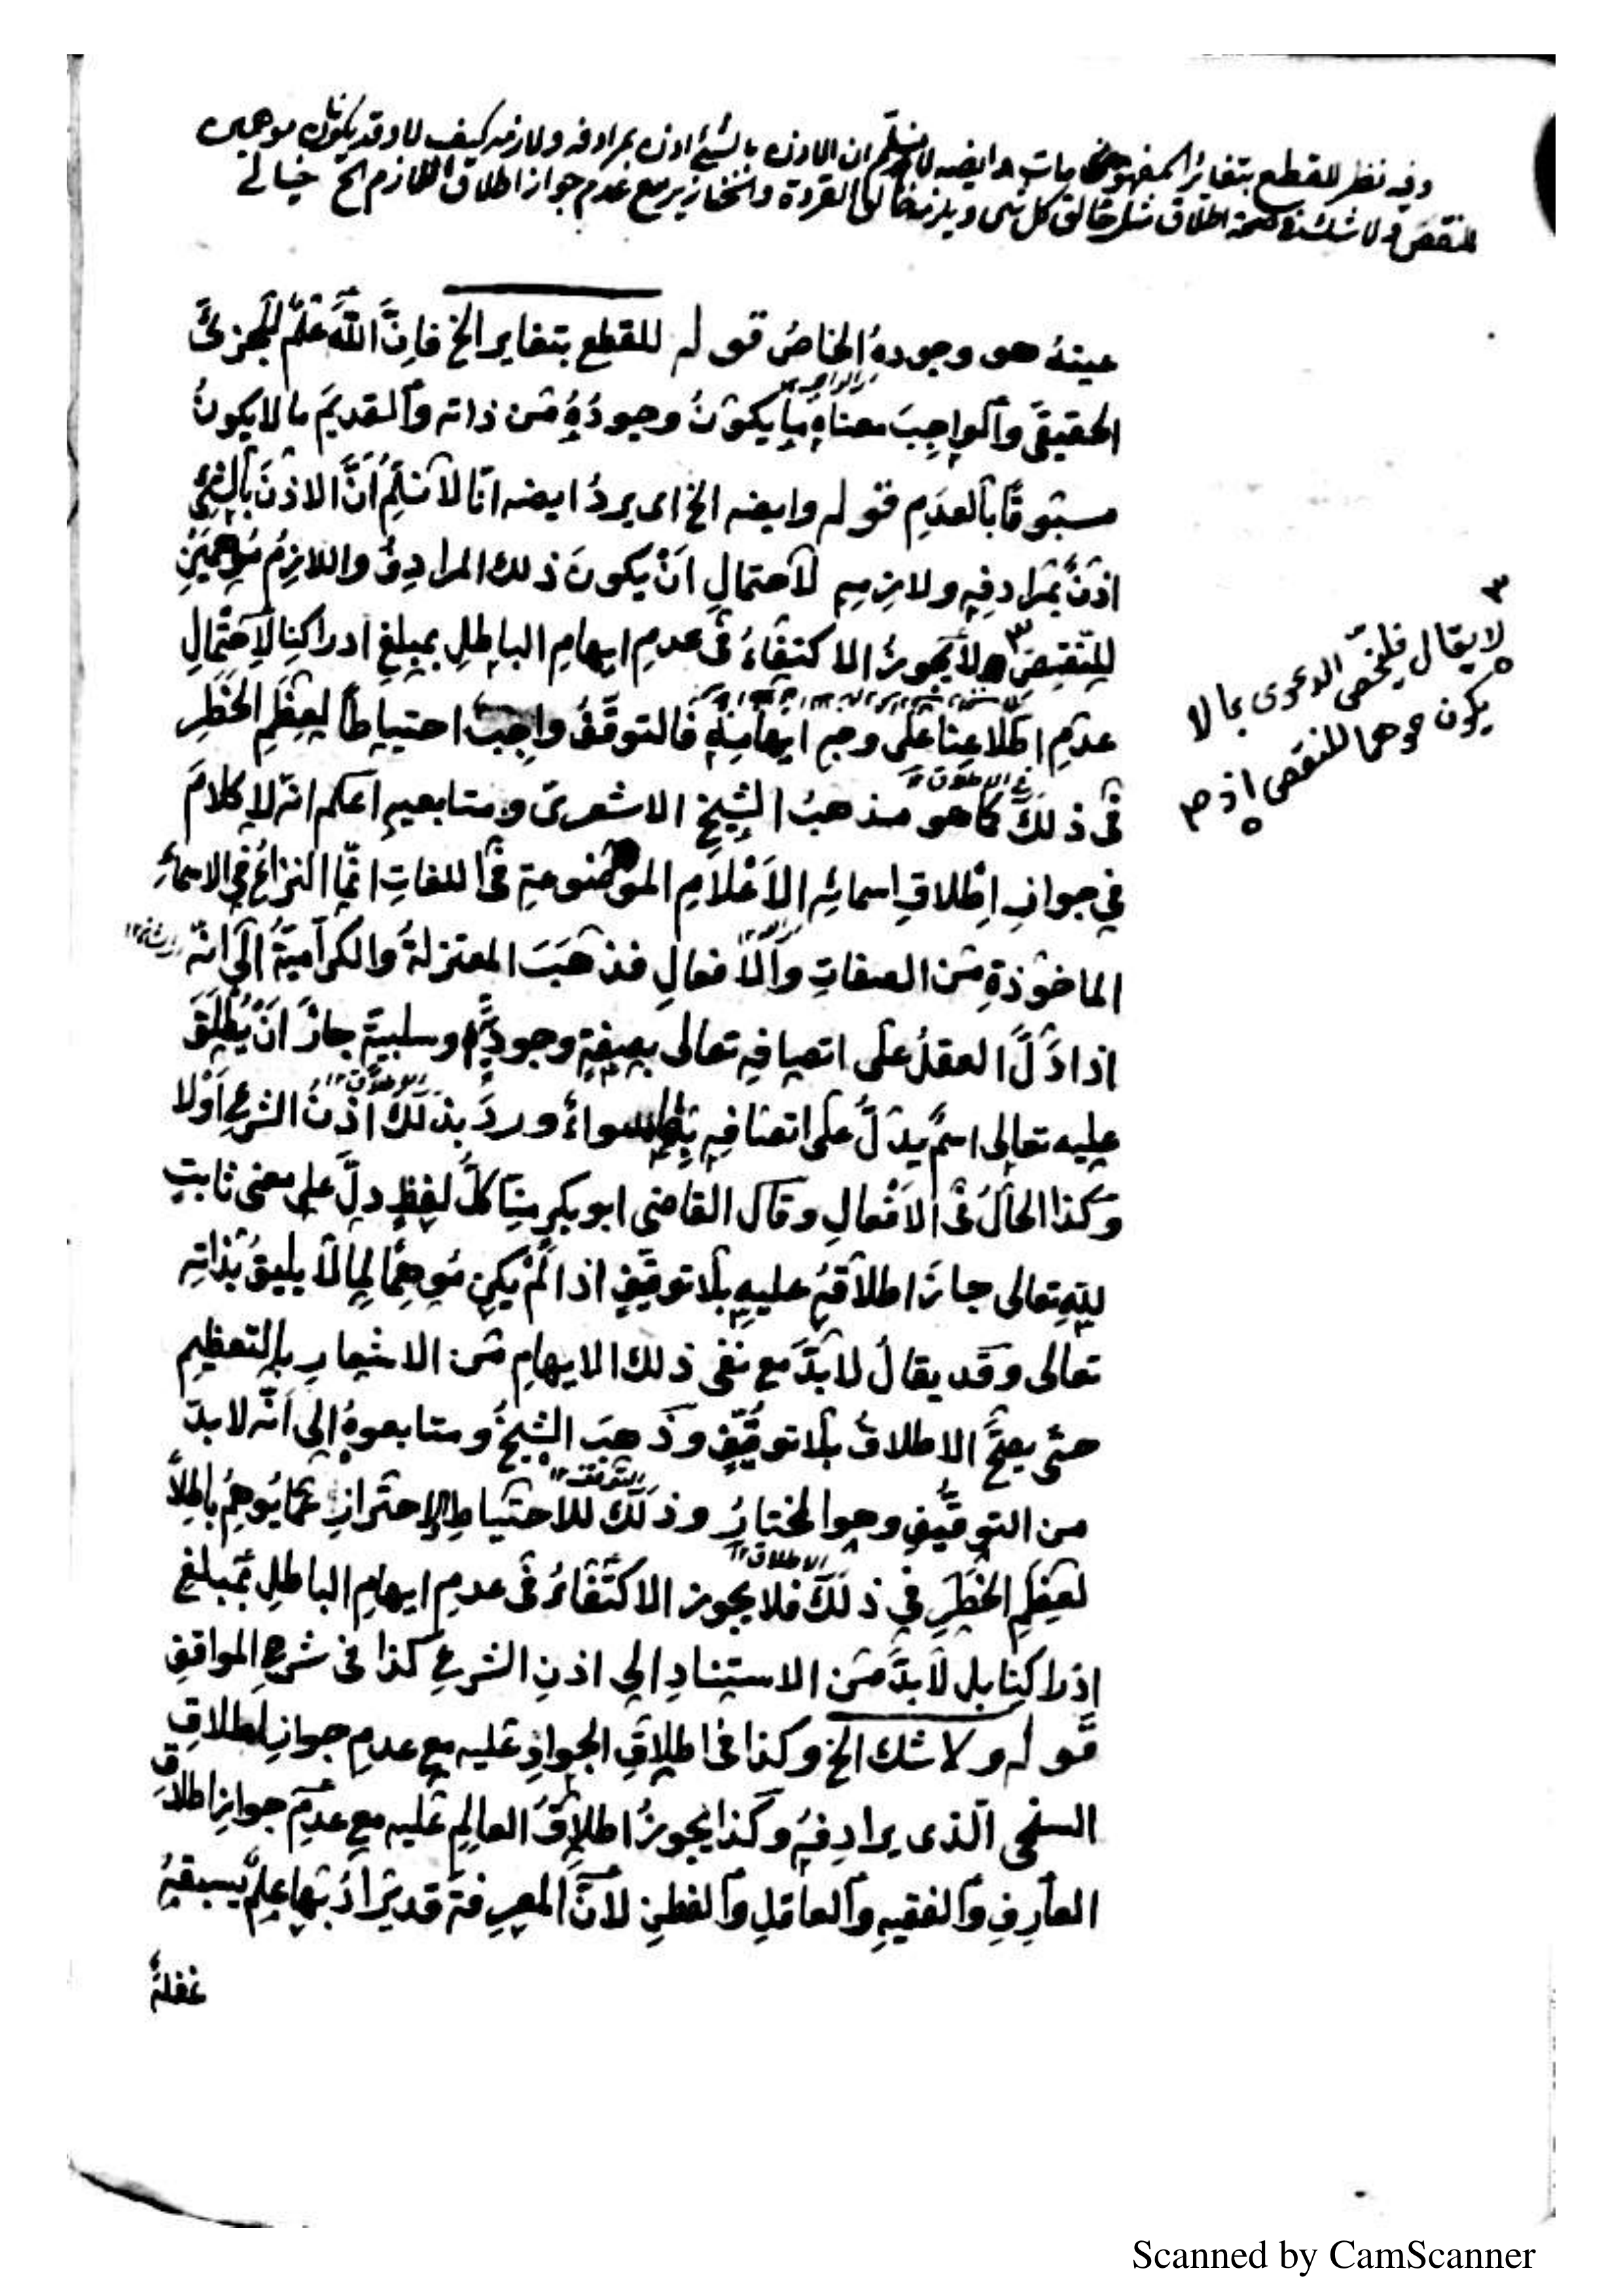 وفيه نظر للقطع بتغاير المفهومات وايضه لا نسلم ان الاذن بالشئ اذن بمرادفه ولازمه كيف لا وقد يكونان موهمين
للنقص ولا شك في صحة اطلاق مثل خالق كل شئ ويلزمه خالق القردة والخنازير مع عدم جواز اطلاق اللازم الخ خيالى
عينهُ هو وجودهُ الخاصُ قوله للقطع بتغاير الخ فاِنَّ اللهَ عَلَمٌ للجزئىّ
الحقيقىّ والواجِبَ معناه ما يكونُ وجودُهُ مِن ذاته والقديمَ ما لا يكونُ
مسبوقًا بالعدَمِ قوله وايضه الخ اى يردُ ايضه انّا لا نسلّمُ اَنَّ الاذنَ بالشئِ
اذنٌ بمرادفِهِ ولازِمِهِ لاحتمالِ اَنْ يكونَ ذلك المرادِفُ واللازِمُ مُوهِمَينِ
للنّقصِ ٣ ولا يجوزُ الاكتفاءُ فى عدمِ ايهامِ الباطلِ بمبلغِ ادراكِنا لاحتمالِ
عدمِ اطلاعِنا على وجهِ ايهامِهِ فالتوقّفُ واجِبٌ احتياطًا لِعِظَمِ الخَطَرِ
فى ذلكَ كما هو مذهبُ الشيخِ الاشعرىّ ومتابعيهِ اعلم انّه لا كلامَ
فى الاطلاق ١٢
في جوازِ اِطْلاقِ اسمائِه الاَعْلامِ الموضوعةِ فى اللغاتِ انّما النزاعُ فى الاسماءِ
الماخوذةِ مِن الصفاتِ والافعالِ فذهَبَ المعتزلةُ والكرّاميّةُ الى انّه
اذا دَلَّ العقلُ على اتصافِهِ تعالى بصِفةٍ وجوديّةٍ او سلبيةٍ جازَ اَنْ يُطْلَقَ
عليه تعالى اسمٌ يدلُّ على اتصافِهِ بها سواءٌ وردَ بذلكَ اذنُ الشرعِ اَوْ لا
الاطلاق ١٢
وكذا الحالُ فى الاَفْعالِ وقال القاضى ابو بكرٍ مِنّا كلُّ لفظٍ دلَّ على معنى ثابتٍ
للهِ تعالى جازَ اطلاقهُ عليهِ بلا توقيفٍ اذا لَمْ يكن مُوهِمًا لِما لا يليقُ بذاتِه
تعالى وقد يقالُ لا بدَّ مع نفى ذلك الايهامِ مِن الاشعارِ بالتعظيم
حتّى يصحَّ الاطلاقُ بلا توقيفٍ وذهبَ الشيخُ ومتابعوهُ الى انّه لا بدّ
من التوقيفِ وهو المختارُ وذلكَ للاحتياطِ والاحترازِ عمّا يُوهِمُ باطلاً
التوقف ١٢
لعِظَمِ الخَطَرِ في ذلكَ فلا يجوز الاكتفاءُ فى عدمِ ايهامِ الباطلِ بمبلغِ
الاطلاق ١٢
ادراكِنا بل لا بدَّ مِن الاستنادِ الى اذنِ الشرعِ كذا فى شرحِ المواقفِ
قوله ولا شك الخ وكذا فى اطلاقِ الجوادِ عليه مع عدمِ جوازِ اطلاقِ
السخى الّذى يرادِفهُ وكذا يجوزُ اطلاقُ العالِمِ عليه مع عدمِ جوازِ اطلاقِ
العارِفِ والفقيهِ والعاقلِ والفطنِ لانَّ المعرفةَ قد يُرادُ بها علمٌ يسبقهُ
غفلةٌ
٣
لا يقال فليخص الدعوى بما لا
يكون موهما للنقص اذ ٣
Scanned by CamScanner